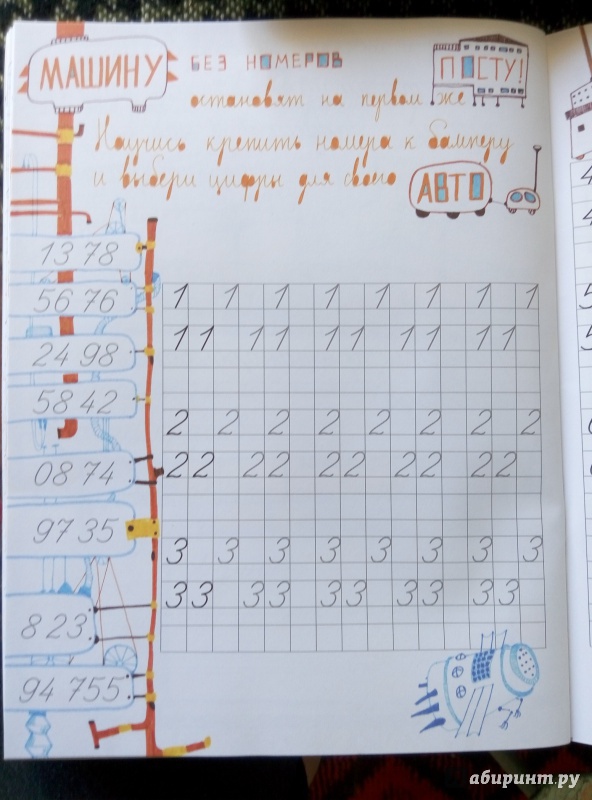 МАШИНУ БЕЗ НОМЕРОВ
остановят на первом же ПОСТУ!
Научись крепить номера к бамперу
и выбери цифры для своего АВТО
13 78
56 76
24 98
58 42
08 74
97 35
8 23
94 755
1 1 1 1 1 1 1 1
11 11 11 11 11
2 2 2 2 2 2 2 2
22 22 22 22 22
3 3 3 3 3 3 3 3
33 33 33 33 33
абиринт.ру